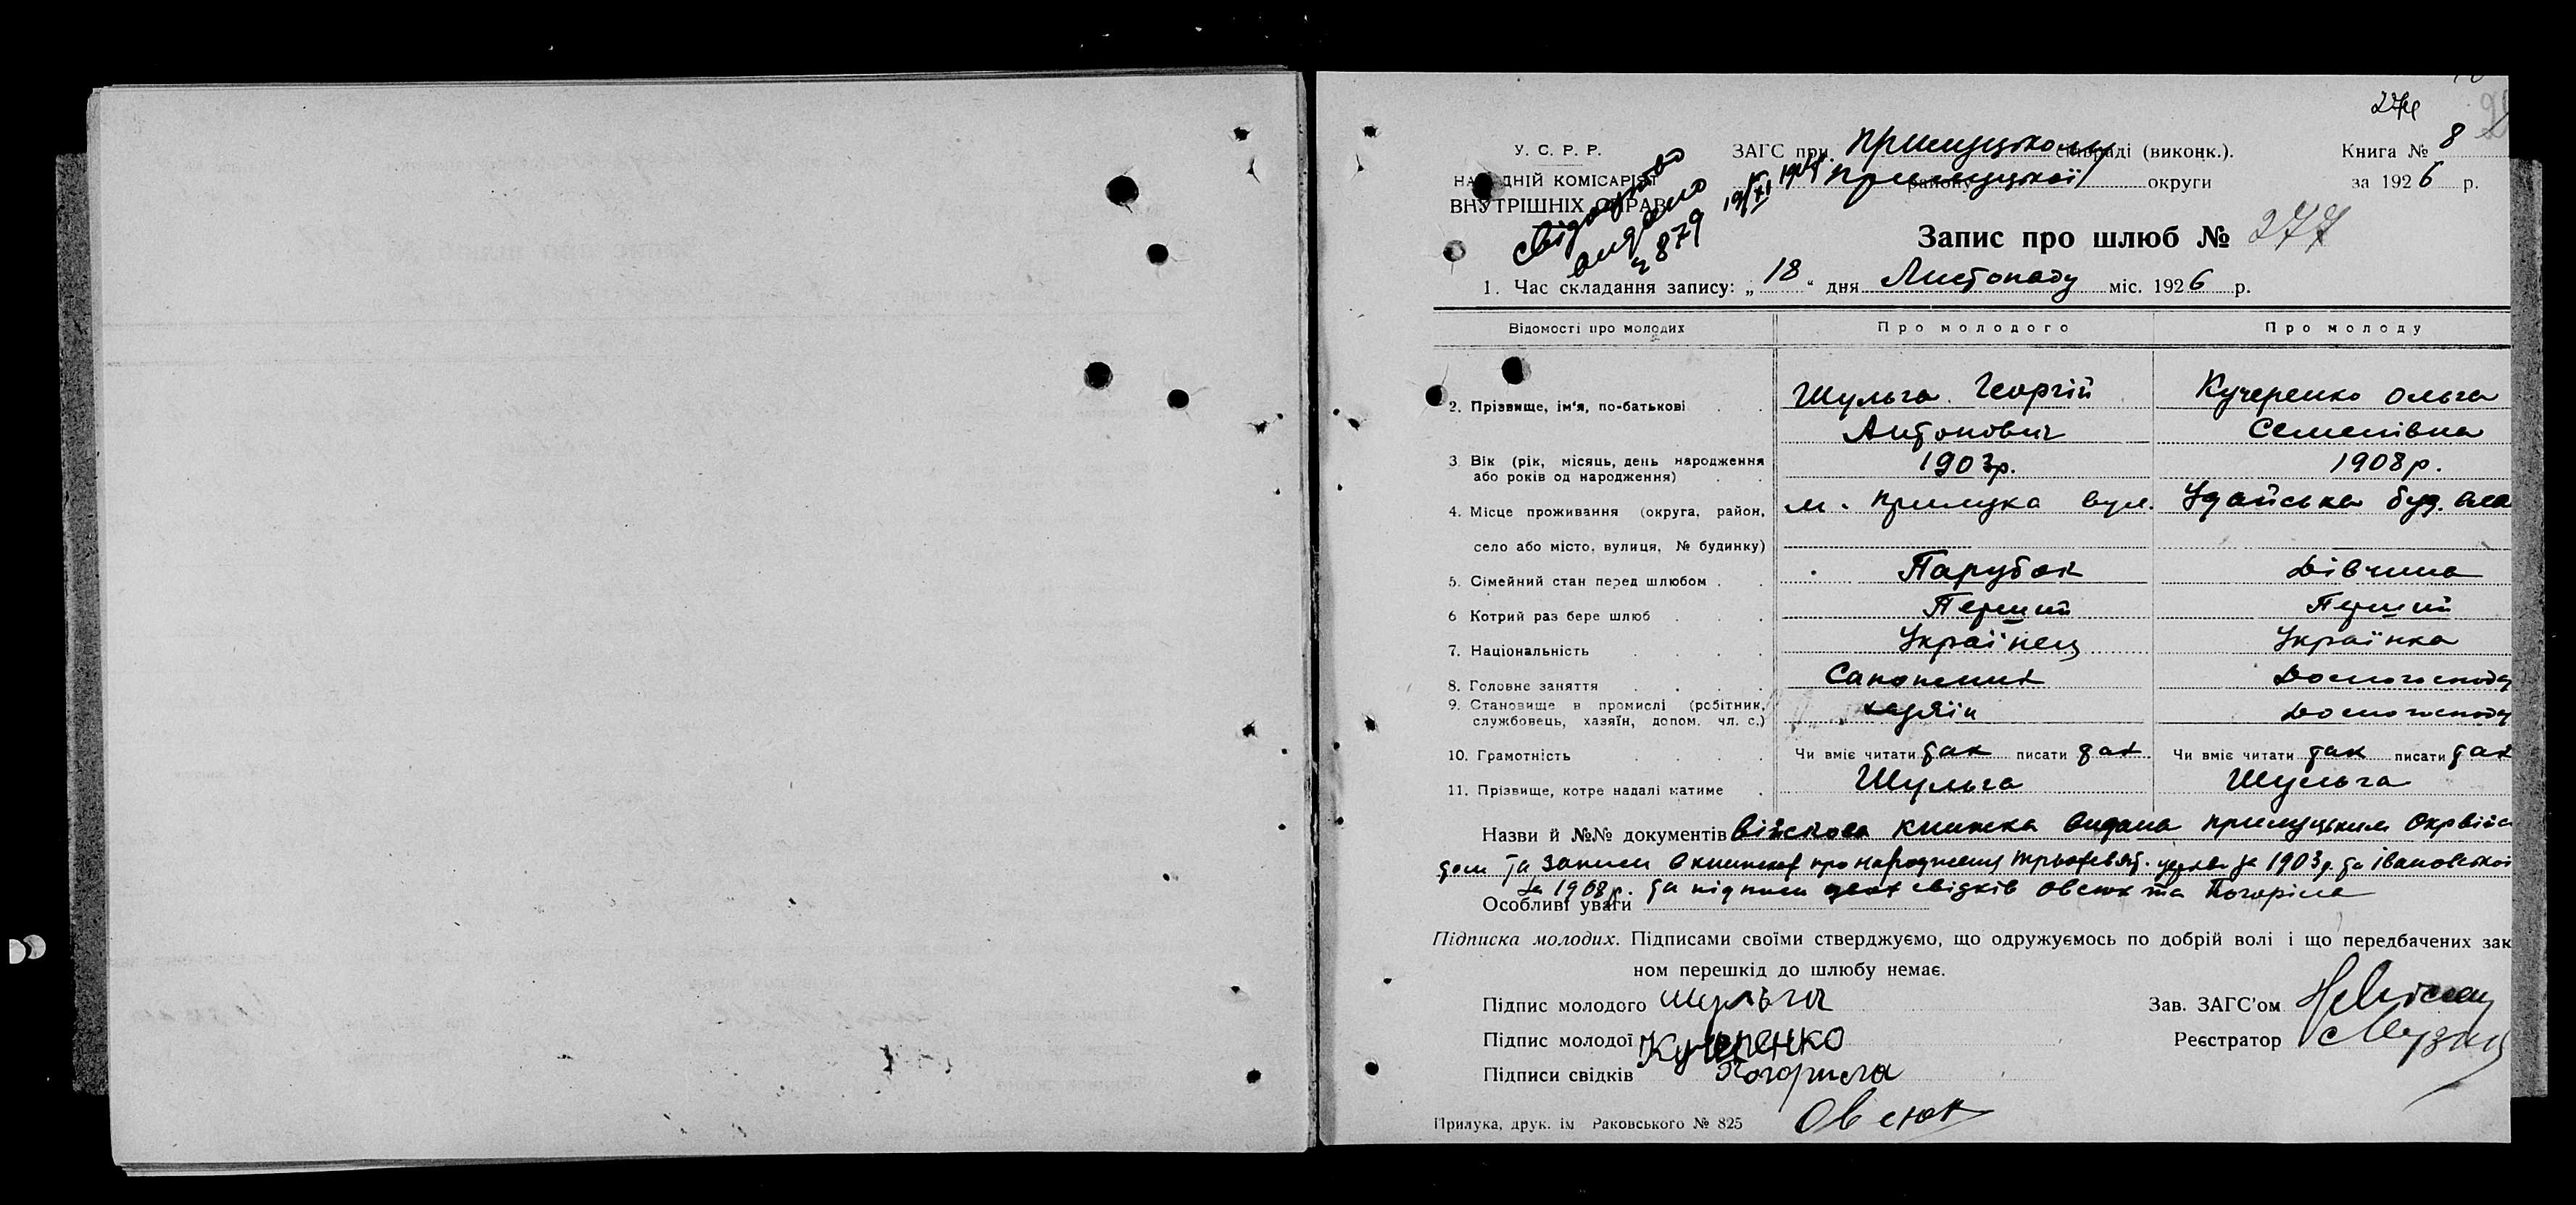 274
У. С. Р. Р.
ЗАГС при Прилуцькому (виконк.).
Книга № 8
НАРОДНІЙ КОМІСАРІЯТ
району Прилуцької округи
за 1926 р.
ВНУТРІШНІХ СПРАВ
свідоцтво
видано
ч 879
19/XI
Запис про шлюб № 277
1. Час складання запису: „ 18 “ дня Листопаду міс. 1926 р.
Відомості про молодих Про молодого Про молоду
2. Прізвище, ім'я, по-батькові Шульга Георгій Кучеренко Ольга
Антонович Семенівна
3 Вік (рік, місяць, день народження 1903р. 1908р.
або років од народження)
4. Місце проживання (округа, район, м. Прилука вул. Удайська буд.
село або місто, вулиця, № будинку)
5. Сімейний стан перед шлюбом Парубок Дівчина
6 Котрий раз бере шлюб Перший Перший
7. Національність Українец Українка
8. Головне заняття Сапожник Домогоспод
9. Становище в промислі (робітник, хазяїн Домогоспод
службовець, хазяїн, допом. чл. с.)
10. Грамотність Чи вміє читати так писати так Чи вміє читати так писати так
11. Прізвище, котре надалі матиме Шульга Шульга
Назви й №№ документів військова книжка видана прилуцьким Окрвійс
та записи в книжках про народження церкви за 1903р. та Івановської
за 1908р. та підписи двох свідків Овсюк та Погоріла
Особливі уваги
Підписка молодих. Підписами своїми стверджуємо, що одружуємось по добрій волі і що передбачених зак
ном перешкід до шлюбу немає.
Підпис молодого Шульга
Зав. ЗАГС'ом
Підпис молодої Кучеренко
Реєстратор
Підписи свідків Погорила
Овсюк
Прилука, друк. ім Раковського № 825